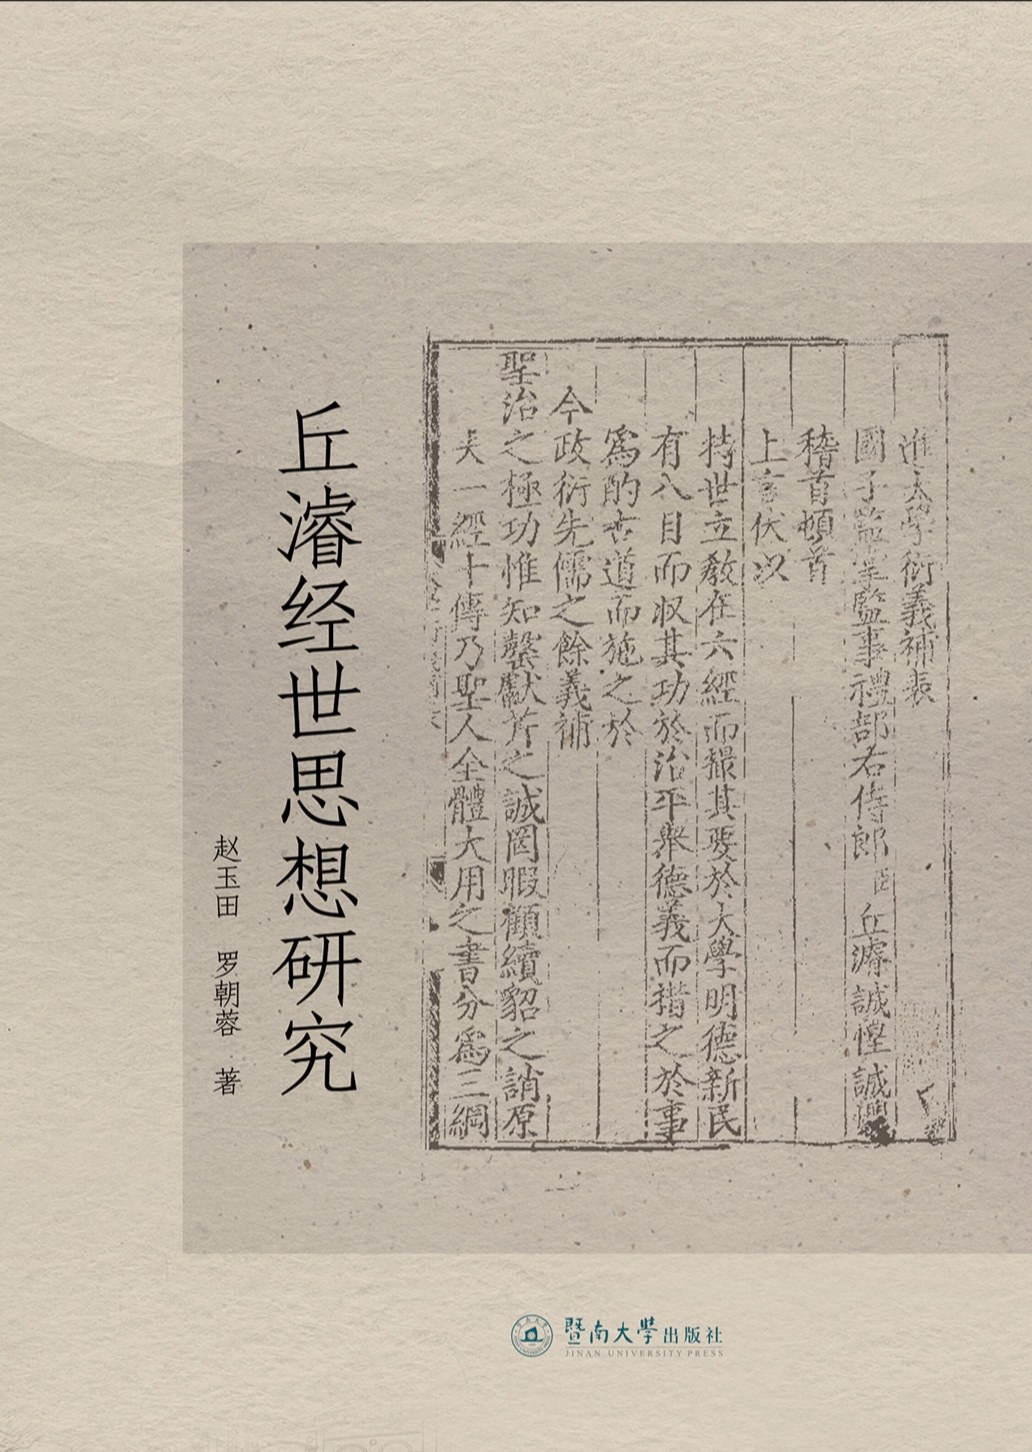 進大學衍義補表
國子監掌監事禮部右侍郎臣丘濬誠惶誠懼
稽首頓首
上言伏以
持世立教在六經而撮其要於大學明德新民
有八目而収其功於治平舉德義而措之於事
爲酌古道而施之於
今政衍先儒之餘義補
聖治之極功惟知罄獻芹之誠罔暇顧續貂之誚原
夫一經十傳乃聖人全體大用之書分爲三綱
丘濬经世思想研究
赵玉田 罗朝蓉 著
暨南大學出版社
JINAN UNIVERSITY PRESS